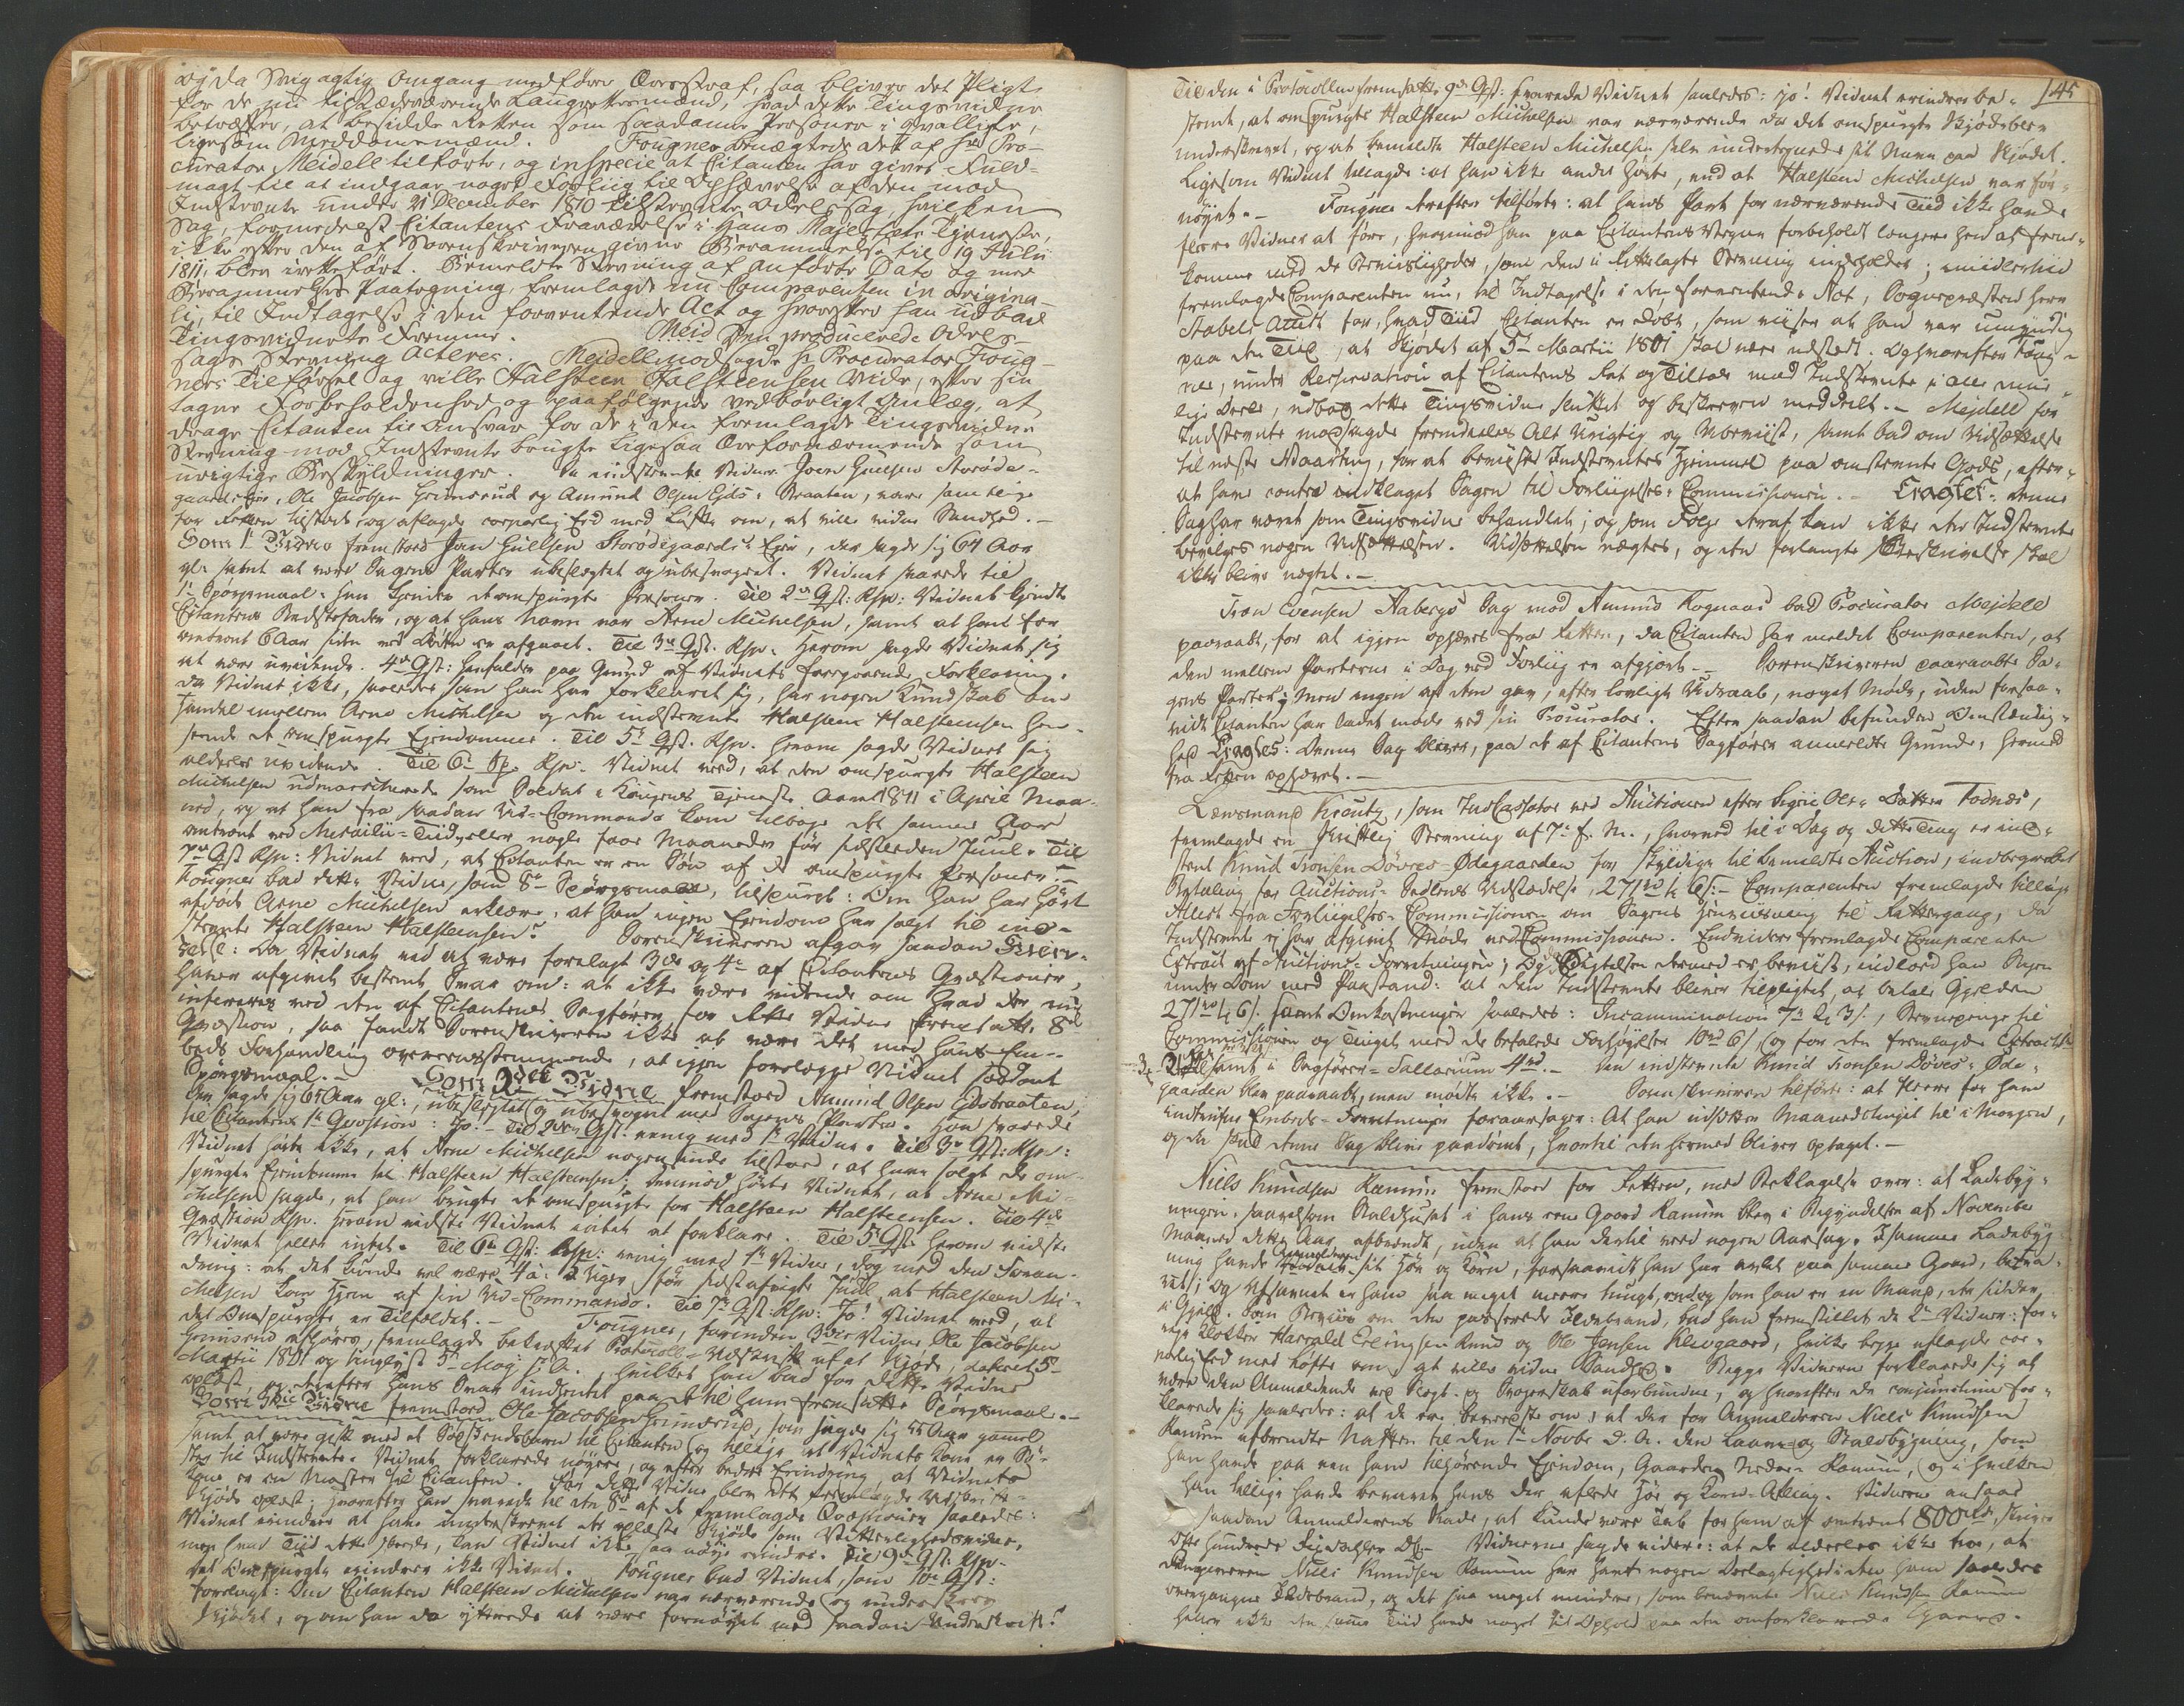 og da Svigagtig Omgang medfører Æresstraf, saa bliver det Pligt
for de nu tilstædeværende Laugrettesmænd, hvad dette Tingsvidne
betræffer, at besidde Retten som saadanne Personer i qvalitet,
ligesom Meddomsmænd. Fougner benægtede det af Hr Pro-
curator Meidell tilførte, og in specie at Citanten har givet Fuld-
magt til at indgaae noget Forliig til Ophævelse af den mod
Indstevnte under 21 December 1810 tilstevnte Odels Sag, hvilken
Sag, formedelst Citantens Fraværelse i Hans Majestæts Tjeneste,
ikke efter den af Sorenskriveren givne Berammelse til 19 Julii
1811, blev iretteført. Bemeldte Stevning af anførte Dato og med
Berammelses Paategning, fremlagde nu Comparenten in origina-
li, til Indtagelse i den forventende Act og hvorefter han udbad
Tingsvidnets Fremme. Den producerede Odels-
sags Stevning acteres. Meidell modsagde Hr Procurator Foug-
ners Tilførsel og ville Halsteen Halsteensen vide, efter sin
tagne Forbeholdenhed og paafølgende vedbørligt Anlæg, at
drage Citanten til Ansvar for de i den fremlagde Tingsvidne
Stevning mod Indstevnte brugte ligesaa Ærefornærmende som
urigtige Beskyldninger. De indstevnte Vidner Joen Gullsen Storøde-
gaards Eje, Ole Jacobsen Grimsrud og Amund Olsen Ejdsbraaten, vare samtlige
for Retten tilstæde, og aflagde corporlig Eed med Løfte om, at ville vidne Sandhed.-
Som 1te Vidne fremstoed Joen Gullsen Storødegaards Eje, der sagde sig 64 Aar
gl. samt at være Sagens Parter ubeslægtet og ubesvogret. Vidnet svarede til
1te Spørgsmaal: han kjender de omspurgte Personer. Til 2det Qst: Rsp: Vidnet kjendte
Citantens Bedstefader, og at hans Navn var Arne Michelsen, samt at han for
omtrent 6 Aar siden ved Døden er afgaaet. Til 3de Qst. Rsp. Herom sagde Vidnet sig
at være uvidende. 4de Qst: henfalder paa Grund af Vidnets foregaaende Forklaring.
da Vidnet ikke, saaledes som han har forklaret sig, har nogen Kundskab om
Handel imellem Arne Michelsen og den indstevnte Halsteen Halsteensen hen-
seende de omspurgte Ejendomme. Til 5te Qst. Rsp. herom sagde Vidnet sig
aldeles uvidende. Til 6te Sp. Rsp. Vidnet veed, at den omspurgte Halsteen
Michelsen udmarscherede som Soldat i Kongens Tjeneste Aaret 1811 i April Maa-
ned, og at han fra saadan Ud-Commando kom tilbage det samme Aar
omtrent ved Michaelii-Tiid, eller nogle faae Maaneder før sidstleden Juul. Til
7de Qst Rsp: Vidnet veed, at Citanten er en Søn af de omspurgte Personer.-
Fougner bad dette Vidne, som 8de Spørgsmaal, tilspurgt: Om han har hørt
afdøde Arne Michelsen erklære, at han ingen Ejendom har solgt til ind-
stevnte Halsteen Halsteensen? Sorenskriveren afgav saadan
: Da Vidnet ved at være forelagt 3de og 4de af Citantens Qvæstioner,
haver afgivet bestemt Svar om: at ikke være vidende om hvad der nu
infereres ved den af Citantens Sagfører for dette Vidne fremsatte 8de
Qvæstion, saa fandt Sorenskriveren ikke at være det med hans Em-
beds Forhandling overeensstemmende, at igjen forelægge Vidnet saadant
Spørgsmaal.- Som 2det Vidne fremstoed Amund Olsen Ejdsbraaten,
der sagde sig 65 Aar gl:, ubeslægtet og ubesvogret med Sagens Parter. Han svarede
til Citantens 1te Qvæstion: Jo.- Til 2den Qst: eenig med 1te Vidne. Til 3de Qst: Rsp:
Vidnet hørte ikke, at Arne Michelsen nogensinde tilstoed, at have solgt de om-
spurgte Ejendomme til Halsteen Halsteensen; derimod hørte Vidnet, at Arne Mi-
chelsen sagde, at han brugte de omspurgte for Halsteen Halsteensen. Til 4de
Qvæstion Rsp. herom vidste Vidnet intet at forklare. Til 5te Qst. herom vidste
Vidnet heller intet. Til 6te Qst: Rsp: eenig med 1te Vidne, dog med den Foran-
dring: at det kunde vel være 4 à 5 Uger før sidstafvigte Juul, at Halsteen Mi-
chelsen kom hjem af sin Ud-Commando. Til 7de Qst: Rsp: Jo! Vidnet veed, at
det Omspurgte er Tilfældet.- Fougner, forinden 3die Vidne Ole Jacobsen
Grimsrud afhøres, fremlagde bekræftet Protocoll-Udskrift af et Skjøde, dateret 5te
Martii 1801 og tinglyst 5te Maj s. A. hvilket han bad for dette Vidne
oplæst, og derefter hans Svar indhentet paa de til ham fremsatte Spørgsmaal.-
Som 3die Vidne fremstoed Ole Jacobsen Grimsrud, som sagde sig 55 Aar gammel
samt at være gift med et Sødskendebarn til Citanten og tillige at Vidnets Kone er Sø-
ster til Indstevnte. Vidnet forklarede nøjere, og efter bedre Erindring, at Vidnets
Kone er en Moster til Citanten. For dette Vidne blev det fremlagde Udskrift
Skjøde oplæst; hvorefter han svarede til den 8de af de fremlagde Qvæstioner saaledes:
Vidnet erindrer at have underskrevet det oplæste Skjøde som Vitterlighedsvidne,
men hvad Tiid dette skeede, kan Vidnet ikke saa nøje erindre. Til 9de Qst: Rsp.
det Omspurgte erindrer ikke Vidnet. Fougner bad Vidnet, som 10de Qst:
forelagt: Om Citanten Halsteen Michelsen var nærværende og underskrev
Skjødet, og om han da yttrede at være fornøjet med saadan Underskrift?
145
Til den i Protocollen fremsatte 9de Qst: svarede Vidnet saaledes: Jo! Vidnet erindrer be-
stemt, at omspurgte Halsteen Michelsen var nærværende da det omspurgte Skjøde blev
underskrevet, og at bemeldte Halsteen Michelsen selv undertegnede sit Navn paa Skjødet.
Ligesom Vidnet tillagde: at han ikke andet hørte, end at Halsteen Michelsen var for-
nøjet.- Fougner derefter tilførte: at hans Part for nærværende Tiid ikke havde
fleere Vidner at føre, hvorimod han paa Citantens Vegne forbeholdt længere hen at frem-
komme med de Beviisligheder, som den i Rettelagte Stevning indeholder; imidlertid
fremlagde Comparenten nu, til Indtagelse i den forventende Act, Sognepræsten Herr
Stabels Attest for, hvad Tiid Citanten er døbt, som viiser at han var umyndig
paa den Tiid, at Skjødet af 5te Martii 1801 skal være udstædt. Og hvorefter Foug-
ner, under Reservation af Citantens Ret og Tiltale mod Indstevnte i alle mue-
lige Deele, udbad dette Tingsvidne sluttet og beskreven meddeelt.- Mejdell for
Indstevnte modsagde fremdeeles Alt Urigtig og Ubeviist, samt bad om Udsættelse
til næste Maanting, for at beviise Indstevntes Hjemmel paa omstevnte Gods, efter
at have contra indklaget Sagen til Forligelses-Commissionen.- Eragtet: denne
Sag har været som Tingsvidne behandlet; og som Følge deraf kan ikke den Indstevnte
bevilges nogen Udsættelsen. Udsættelsen nægtes, og den forlangte Beskrivelse skal
ikke blive nægtet.-
Iver Evensen Aabergs Sag mod Amund Rognaas bad Procurator Mejdell
paaraabt, for at igjen ophæves fra Retten, da Citanten har meldet Comparenten, at
den mellem Parterne i Dag ved Forliig er afgjort.- Sorenskriveren paaraabte Sa-
gens Parter; Men ingen af dem gav, efter lovligt Udraab, noget Møde, uden forsaa-
vidt Citanten har ladet møde ved sin Procurator. Efter saadan befunden Omstændig-
hed Eragtes: Denne Sag bliver, paa de af Citantens Sagfører anmeldte Grunde, hermed
fra Retten ophævet.-
Lænsmand Kreutz, som Incassator ved Auctionen efter Sigrie Ols-Datter Fodnæs,
fremlagde en skriftlig Stevning af 7de f. M., hvorved til i Dag og dette Ting er ind-
stevnt Knud Ivensen Døvres-Ødegaarden for skyldige til bemeldte Auction, indbegrebet
Betaling for Auctions-Sedlens Udstædelse, 27 rd 4 6 s:- Comparenten fremlagde tillige
Attest fra Forligelses-Commissionen om Sagens Henviisning til Rettergang, da
Indstevnte ej har afgivet Møde ved Commissionen. Endvidere fremlagde Comparenten
Extract af Auctions-Forretningen; Og da Rigtigheden dermed er beviist, indlod han Sagen
under Dom med Paastand: at den Indstevnte bliver tilpligtet, at betale Gjelden
27 rd 4 6 s. samt Omkostninger saaledes: Incammination 7de 4 3 s., Stevnepenge til
Commissionen og Tinget med de befalede Forhøjelser 10 rd 6 s og for den fremlagde Extract
samt i Sagfører-Sallarium 4 rd.- Den indstevnte Knud Ivensen Døvres-Øde-
gaarden blev paaraabt, men mødte ikke.- Sorenskriveren tilførte: at fleere for ham
indtrufne Embeds-Forretninger foraarsager: At han udsætter Maanedstinget til i Morgen,
og da skal denne Sag blive paadømt, hvortil den hermed bliver optaget.-
Niels Knudsen Ramum fremstoed for Retten, med Beklagelse over: at Ladebyg-
ningen, saavelsom Staldhuset i hans eene Gaard Ramum blev i Begyndelsen af November
Maaned dette Aar afbrændt, uden at han dertil veed nogen Aarsag. I samme Ladebyg-
ning havde Anmelderen sit Høe og Korn, forsaavidt han har avlet paa samme Gaard, bevar-
ret; og Afsavnet er ham saa meget meere tungt, endog som han er en Mand, der sidder
i Gjæld. Som Beviis om den passerede Ildebrand, bad han fremstillet de 2de Vidner: for-
rige Klokker Harrald Erlingsen Rund og Ole Jensen Klevgaard, hvilke begge aflagde cor-
porlig Eed med Løfte om, at ville vidne Sandhed. Begge Vidnerne forklarede sig at
være den Anmeldende ved Slegt- og Svogerskab uforbundne, og hvorefter de conjunctim for-
klarede sig saaledes: at de ere bevidste om, at der for Anmelderen Niels Knudsen
Ramum afbrændte Natten til den 1te Novbr d. A. den Laave og Staldbygning, som
han havde paa een ham tilhørende Ejendom, Gaarden Nedre-Ramum, og i hvilken
han tillige havde bevaret hans der avlede Høe og Korn-Avling. Vidnerne ansaae
saadan Anmelderens Skade, at kunde være Tab for ham af omtrent 800 rd, skriver
Otte Hundrede Rigsdaler D.C.- Vidnerne sagde videre: at de aldeeles ikke troe, at
Niels Knudsen Ramum har havt nogen Deelagtighed i den ham saaledes
overgangne Ildebrand, og det saa meget mindre, som benævnte Niels Knudsen Ramum
haver ikke den samme Tiid havde noget sit Ophold paa den omforklarede Gaard.